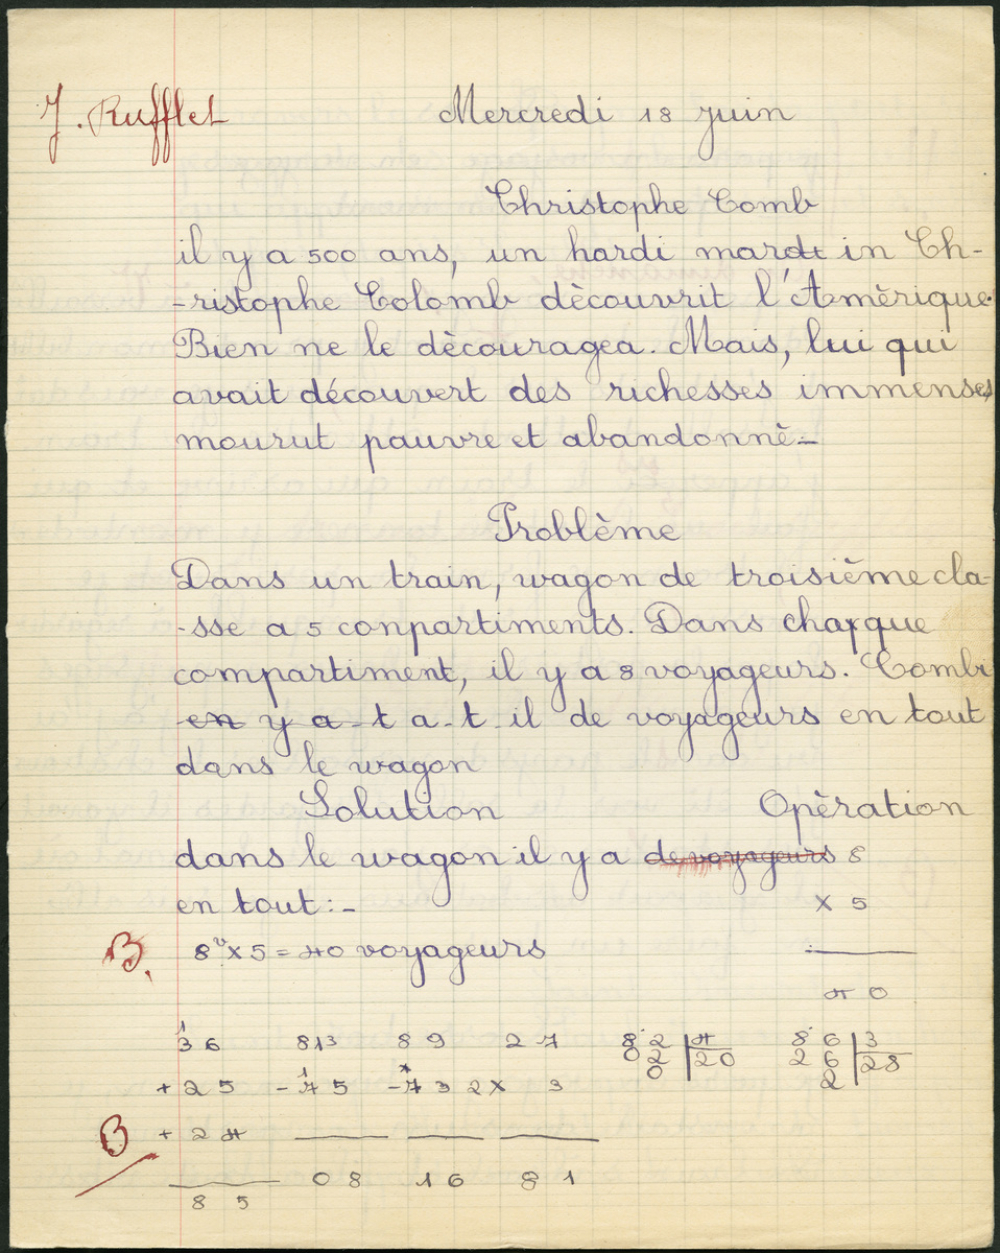 J. Rufflet Mercredi 18 juin
Christophe Comb
il y a 500 ans, un hardi mardt in Ch-
-ristophe Colomb dècouvrit l'Amèrique.
Bien ne le dècouragea. Mais, lui qui
avait découvert des richesses immenses
mourut pauvre et abandonnè.-
Problème
Dans un train, wagon de troisième cla-
-sse a 5 conpartiments. Dans chaque
compartiment, il y a 8 voyageurs. Combi
en y a-t a-t il de voyageurs en tout
dans le wagon
Solution Opèration
dans le wagon il y a de voyageurs 8
en tout:- x 5
B. 8ᵛ x 5 = 40 voyageurs
40
36 813 89 27 82 4 86 3
+ 25 - 75 - 73 2x 3 02 20 26 28
0 2
B + 24
08 16 81
85